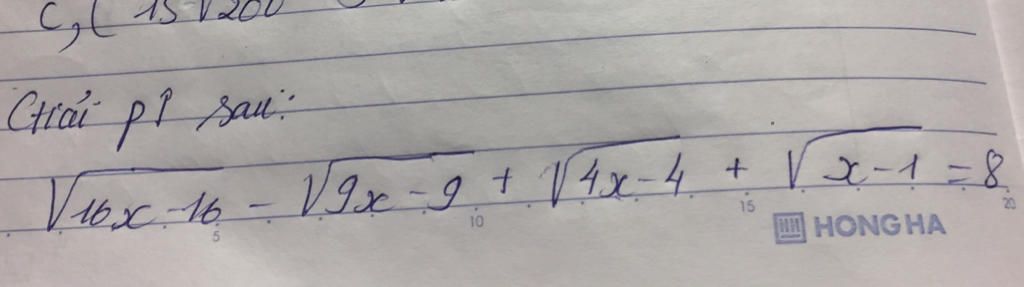 c, ( 15√200
Giải pT sau:
√16x-16 - √9x-9 + √4x-4 + √x-1 = 8
5 10 15 20
HONG HA